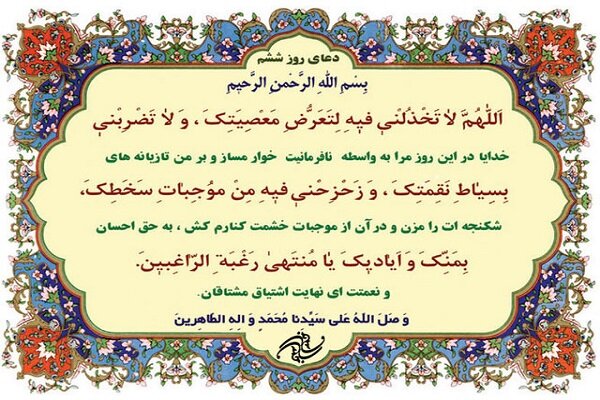 دعای روز ششم
بِسْمِ اللهِ الرَّحْمنِ الرَّحیمِ
اَللّهُمَّ لاٰ تَخْذُلْني فیهِ لِتَعَرُّضِ مَعْصِیَتِکَ ، وَ لاٰ تَضْرِبْني
خدایا در این روز مرا به واسطه نافرمانیت خوار مساز و بر من تازیانه های
بِسِیٰاطِ نَقِمَتِکَ ، وَ زَحْزِحْني فیهِ مِنْ مُوجِبٰاتِ سَخَطِکَ،
شکنجه ات را مزن و در آن از موجبات خشمت کنارم کش ، به حق احسان
بِمَنِّکَ وَ اَیٰادیکَ یٰا مُنتَهیٰ رَغْبَةِ الرّٰاغِبینَ.
و نعمتت ای نهایت اشتیاق مشتاقان.
وَ صَلَ اللهُ عَلی سَیِّدِنا مُحَمَدٍ وَ الِهِ الطّاهِرینَ